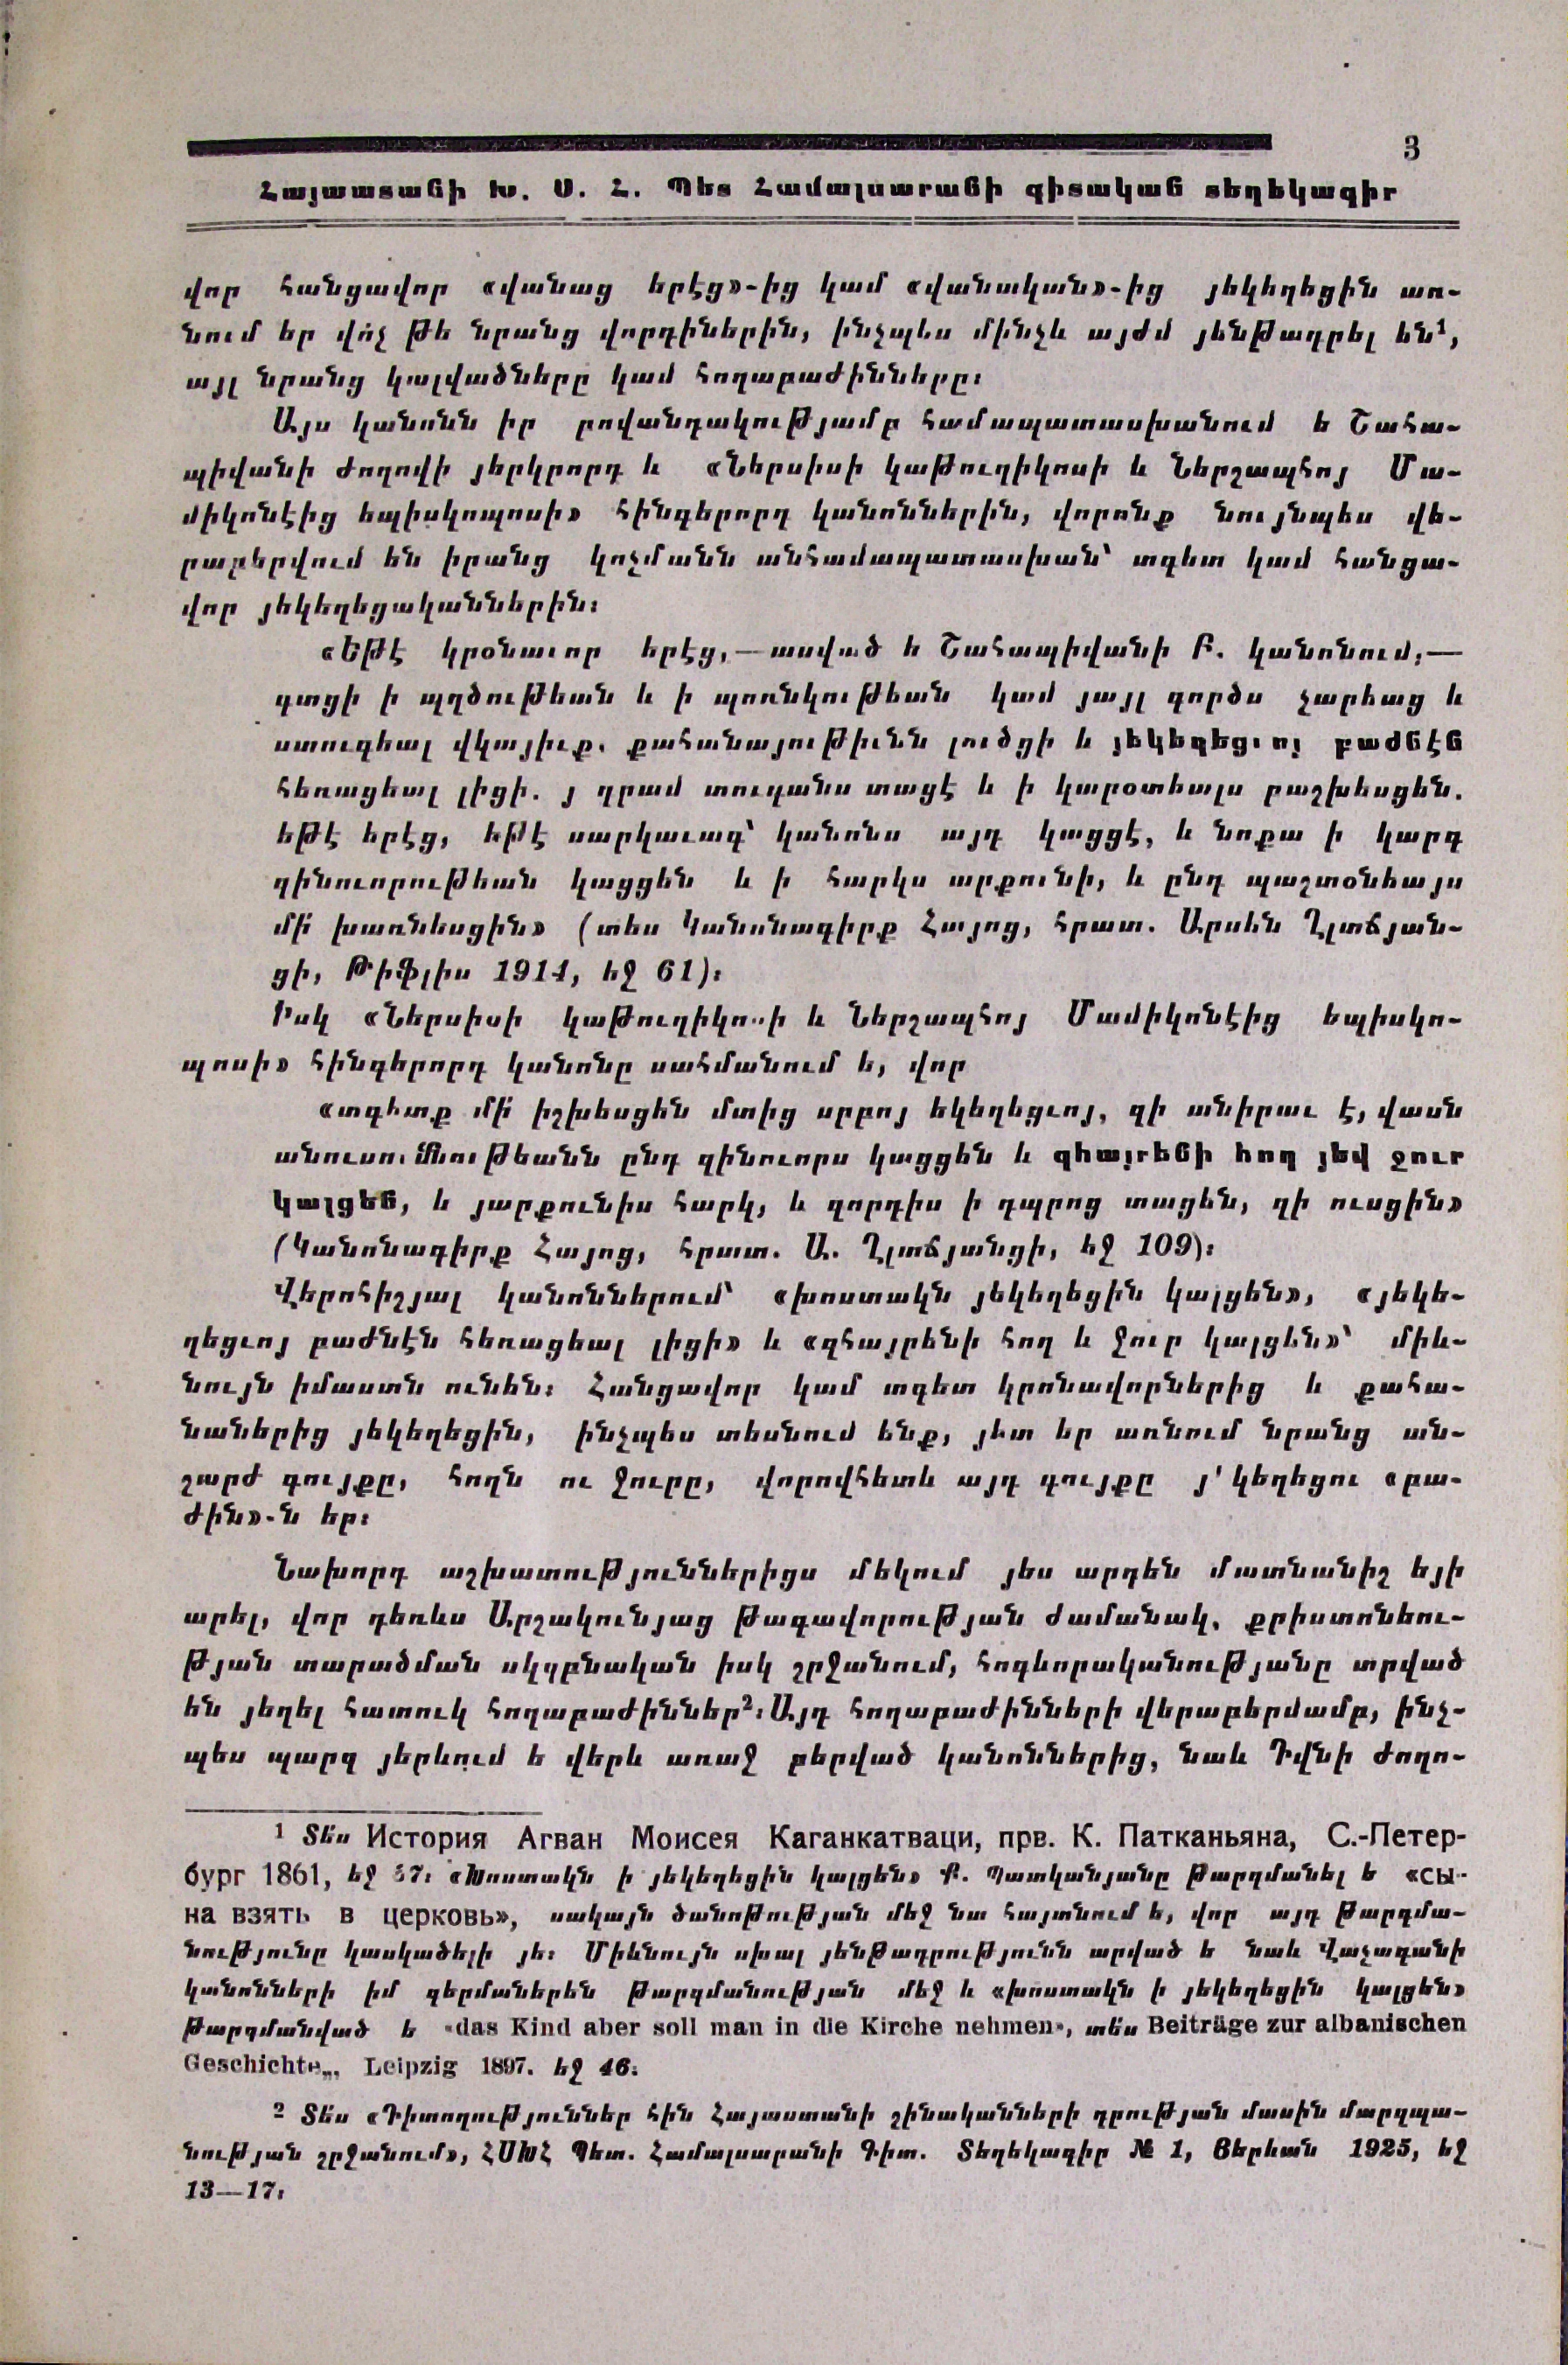 3
Հայաստանի Խ. Ս. Հ. Պետ Համալսարանի գիտական տեղեկագիր
վոր հանցավոր «վանաց երէց»-ից կամ «վանական»-ից յեկեղեցին առ-
նում եր վոչ թե նրանց վորդիներին, ինչպես մինչև այժմ յենթադրել են¹,
այլ նրանց կալվածները կամ հողաբաժինները։
Այս կանոնն իր բովանդակությամբ համապատասխանում ե Շահա-
պիվանի ժողովի յերկրորդ և «Ներսիսի կաթուղիկոսի և Ներշապհոյ Մա-
միկոնէից եպիսկոպոսի» հինգերորդ կանոններին, վորոնք նույնպես վե-
րաբերվում են իրանց կոչմանն անհամապատասխան՝ տգետ կամ հանցա-
վոր յեկեղեցականներին։
«Եթէ կրօնաւոր երէց,— ասված ե Շահապիվանի Բ. կանոնում,—
գտցի ի պղծութեան և ի պոռնկութեան կամ յայլ գործս չարեաց և
ստուգեալ վկայիւք. քահանայութիւնն լուծցի և յեկեղեցւոյ բաժնէն
հեռացեալ լիցի. յ դրամ տուգանս տացէ և ի կարօտեալս բաշխեսցեն.
եթէ երէց, եթէ սարկաւագ՝ կանոնս այդ կացցէ, և նոքա ի կարգ
զինուորութեան կացցեն և ի հարկս արքունի, և ընդ պաշտօնեայս
մի՛ խառնեսցին» (տես Կանոնագիրք Հայոց, հրատ. Արսեն Ղլտճյան-
ցի, Թիֆլիս 1914, եջ 61)։
Իսկ «Ներսիսի կաթուղիկոսի և Ներշապհոյ Մամիկոնէից եպիսկո-
պոսի» հինգերորդ կանոնը սահմանում ե, վոր
«տգետք մի՛ իշխեսցեն մտից սրբոյ եկեղեցւոյ, զի անիրաւ է, վասն
անուսումնութեանն ընդ զինուորս կացցեն և զհայրենի հող յեվ ջուր
կալցեն, և յարքունիս հարկ, և զորդիս ի դպրոց տացեն, զի ուսցին»
(Կանոնագիրք Հայոց, հրատ. Ա. Ղլտճյանցի, եջ 109)։
Վերոհիշյալ կանոններում՝ «խոստակն յեկեղեցին կալցեն», «յեկե-
ղեցւոյ բաժնէն հեռացեալ լիցի» և «զհայրենի հող և ջուր կալցեն»՝ միև-
նույն իմաստն ունեն։ Հանցավոր կամ տգետ կրոնավորներից և քահա-
նաներից յեկեղեցին, ինչպես տեսնում ենք, յետ եր առնում նրանց ան-
շարժ գույքը, հողն ու ջուրը, վորովհետև այդ գույքը յ՛կեղեցու «բա-
ժին»-ն եր։
Նախորդ աշխատություններիցս մեկում յես արդեն մատնանիշ եյի
արել, վոր դեռևս Արշակունյաց թագավորության ժամանակ, քրիստոնեու-
թյան տարածման սկզբնական իսկ շրջանում, հոգևորականությանը տրված
են յեղել հատուկ հողաբաժիններ²։ Այդ հողաբաժինների վերաբերմամբ, ինչ-
պես պարզ յերևում ե վերև առաջ բերված կանոններից, նաև Դվնի ժողո-
¹ Տես История Агван Моисея Каганкатваци, прв. К. Патканьяна, С.-Петер-
бург 1861, եջ 37։ «Խոստակն ի յեկեղեցին կալցեն» Ք. Պատկանյանը թարգմանել ե «сы-
на взять в церковь», սակայն ծանոթության մեջ նա հայտնում ե, վոր այդ թարգմա-
նությունը կասկածելի յե։ Միևնույն սխալ յենթադրությունն արված ե նաև Վաչագանի
կանոնների իմ գերմաներեն թարգմանության մեջ և «խոստակն ի յեկեղեցին կալցեն»
թարգմանված ե «das Kind aber soll man in die Kirche nehmen», տես Beiträge zur albanischen
Geschichte„, Leipzig 1897. եջ 46։
² Տես «Դիտողություններ հին Հայաստանի շինականների դրության մասին մարզպա-
նության շրջանում», ՀՍԽՀ Պետ. Համալսարանի Գիտ. Տեղեկագիր № 1, Յերևան 1925, եջ
13—17։